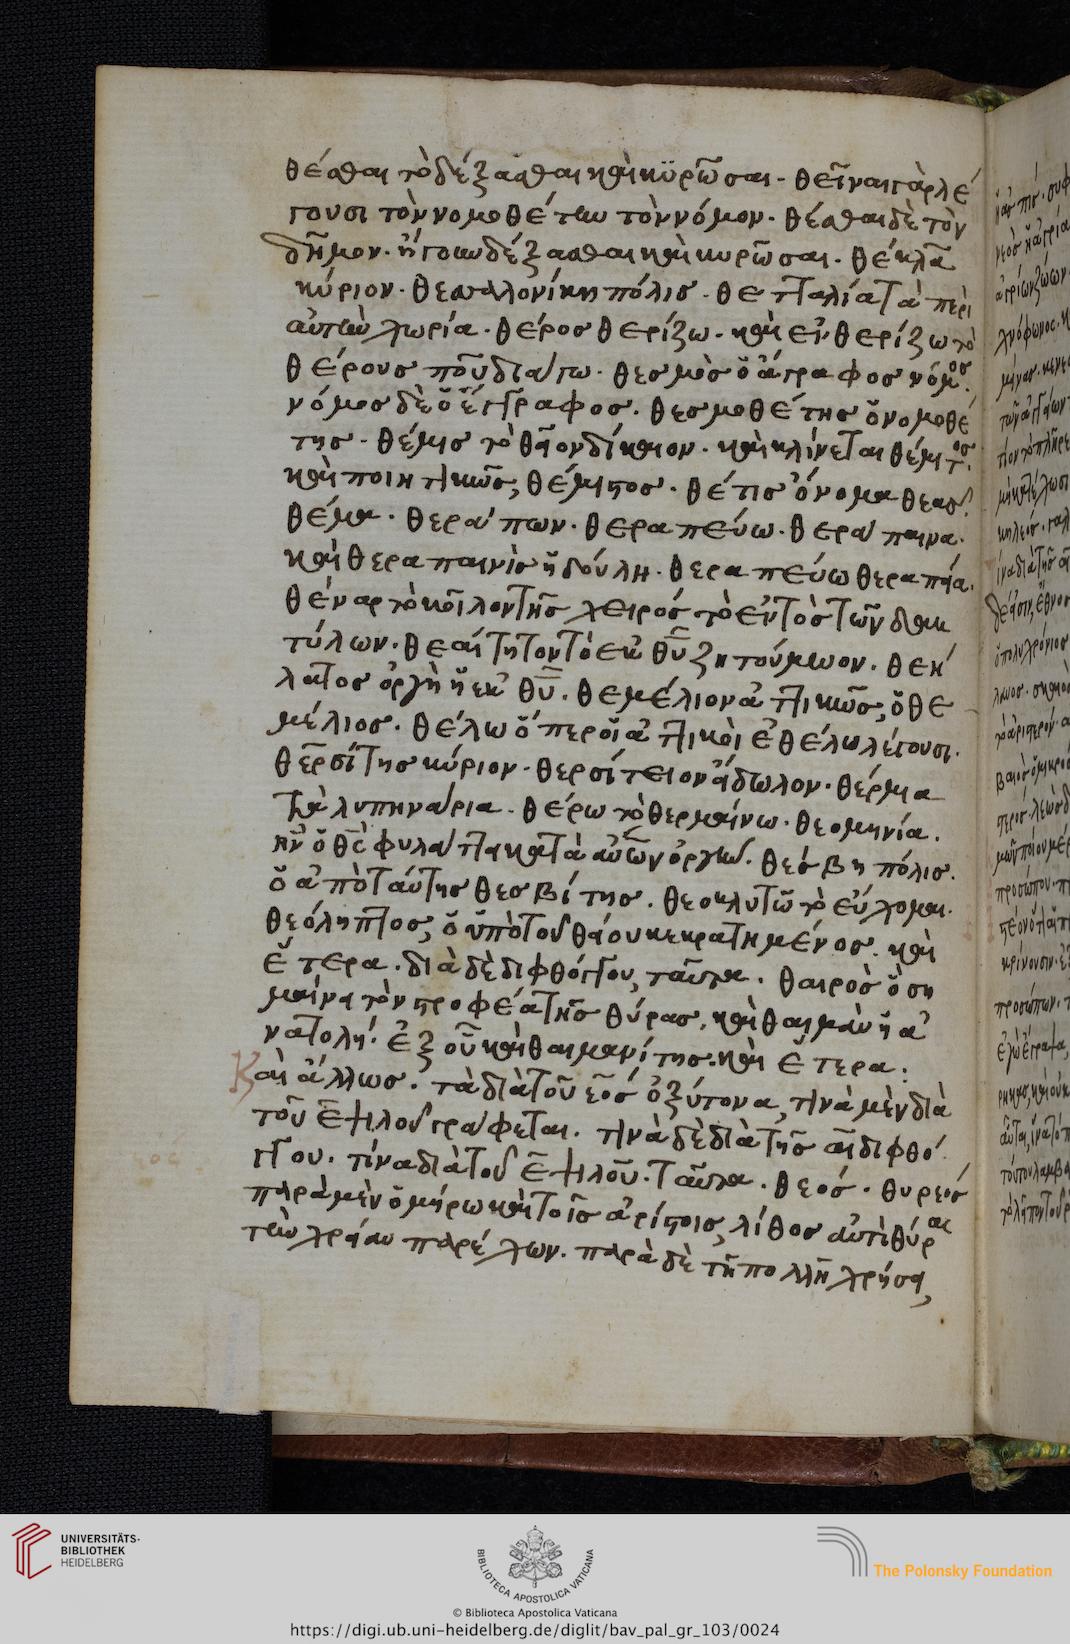 θέσθαι τὸ δέξασθαι καὶ κϋρῶσαι. θεῖναι γὰρ λέ
γουσι τὸν νομοθέτην τὸν νόμον. θέσθαι δὲ τὸν
δῆμον. ἤγουν δέξασθαι καὶ κυρῶσαι. θέκλα
κύριον. θεσσαλονίκη πόλις. θετταλία τὰ περὶ
αὐτὴν χωρία. θέρος θερίζω. καὶ ἐνθερίζω τὸ
θέρους που διάγω. θεσμὸς ὁ ἄγραφος νόμος.
νόμος δὲ ὁ ἔγγραφος. θεσμοθέτης ὁ νομοθέ
της. θέμις τὸ θεῖον δίκαιον. καὶ κλίνεται θέμιτος.
καὶ ποιητικῶς, θέμιστος. θέτις ὄνομα θεᾶς.
θέμα. θεράπων. θεραπεύω. θεράπαινα.
καὶ θεραπαινὶς ἡ δούλη. θεραπεύω θεραπεία.
θέναρ τὸ κοῖλον τῆς χειρός τὸ ἐντὸς τῶν δακ
τύλων. θεαίτητον τὸ ἐκ θῦ ζητούμενον. θεή
λατος ὀργὴ ἡ ἐκ θῦ. θεμέλιον ἀττικῶς, ὁ θε
μέλιος. θέλω ὅπερ οἱ ἀττικοὶ ἐθέλω λέγουσι.
θερσίτης κύριον. θερσίτειον εἴδωλον. θέρμια
τὰ λυπηνάρια. θέρω τὸ θερμαίνω. θεομηνία.
ἣν ὁ θς φυλάττει κατὰ αὐτῶν ὀργήν. θέσβη πόλις.
ὁ ἀπὸ ταύτης θεσβίτης. θεοκλυτῶ τὸ εὔχομαι.
θεόληπτος, ὁ ὑπὸ τοῦ θείου κεκρατημένος. καὶ
ἕτερα. διὰ δὲ διφθόγγου, ταῦτα. θαιρὸς ὃ ση
μαίνει τὸν στροφέα τῆς θύρας. καὶ θαιμὰν ἡ ἀ
νατολή. ἐξ οὗ καὶ θαιμανίτης. καὶ ἕτερα:
Καὶ ἄλλως. τὰ διὰ τοῦ εος ὀξύτονα, τινὰ μὲν διὰ
τοῦ ε ψιλοῦ γράφεται. τινὰ δὲ διὰ τῆς αι διφθό
γγου. τίνα διὰ τοῦ ε ψιλοῦ. ταῦτα. θεός. θυρεός
παρὰ μὲν ὁμήρω καὶ τοῖς ἀρίστοις, λίθος ἀντὶ θύρας
τὴν χρείαν παρέχων. παρὰ δὲ τῆ πολλῆ χρήσει,
UNIVERSITÄTS-
BIBLIOTHEK
HEIDELBERG
BIBLIOTECA APOSTOLICA VATICANA
The Polonsky Foundation
© Biblioteca Apostolica Vaticana
https://digi.ub.uni-heidelberg.de/diglit/bav_pal_gr_103/0024